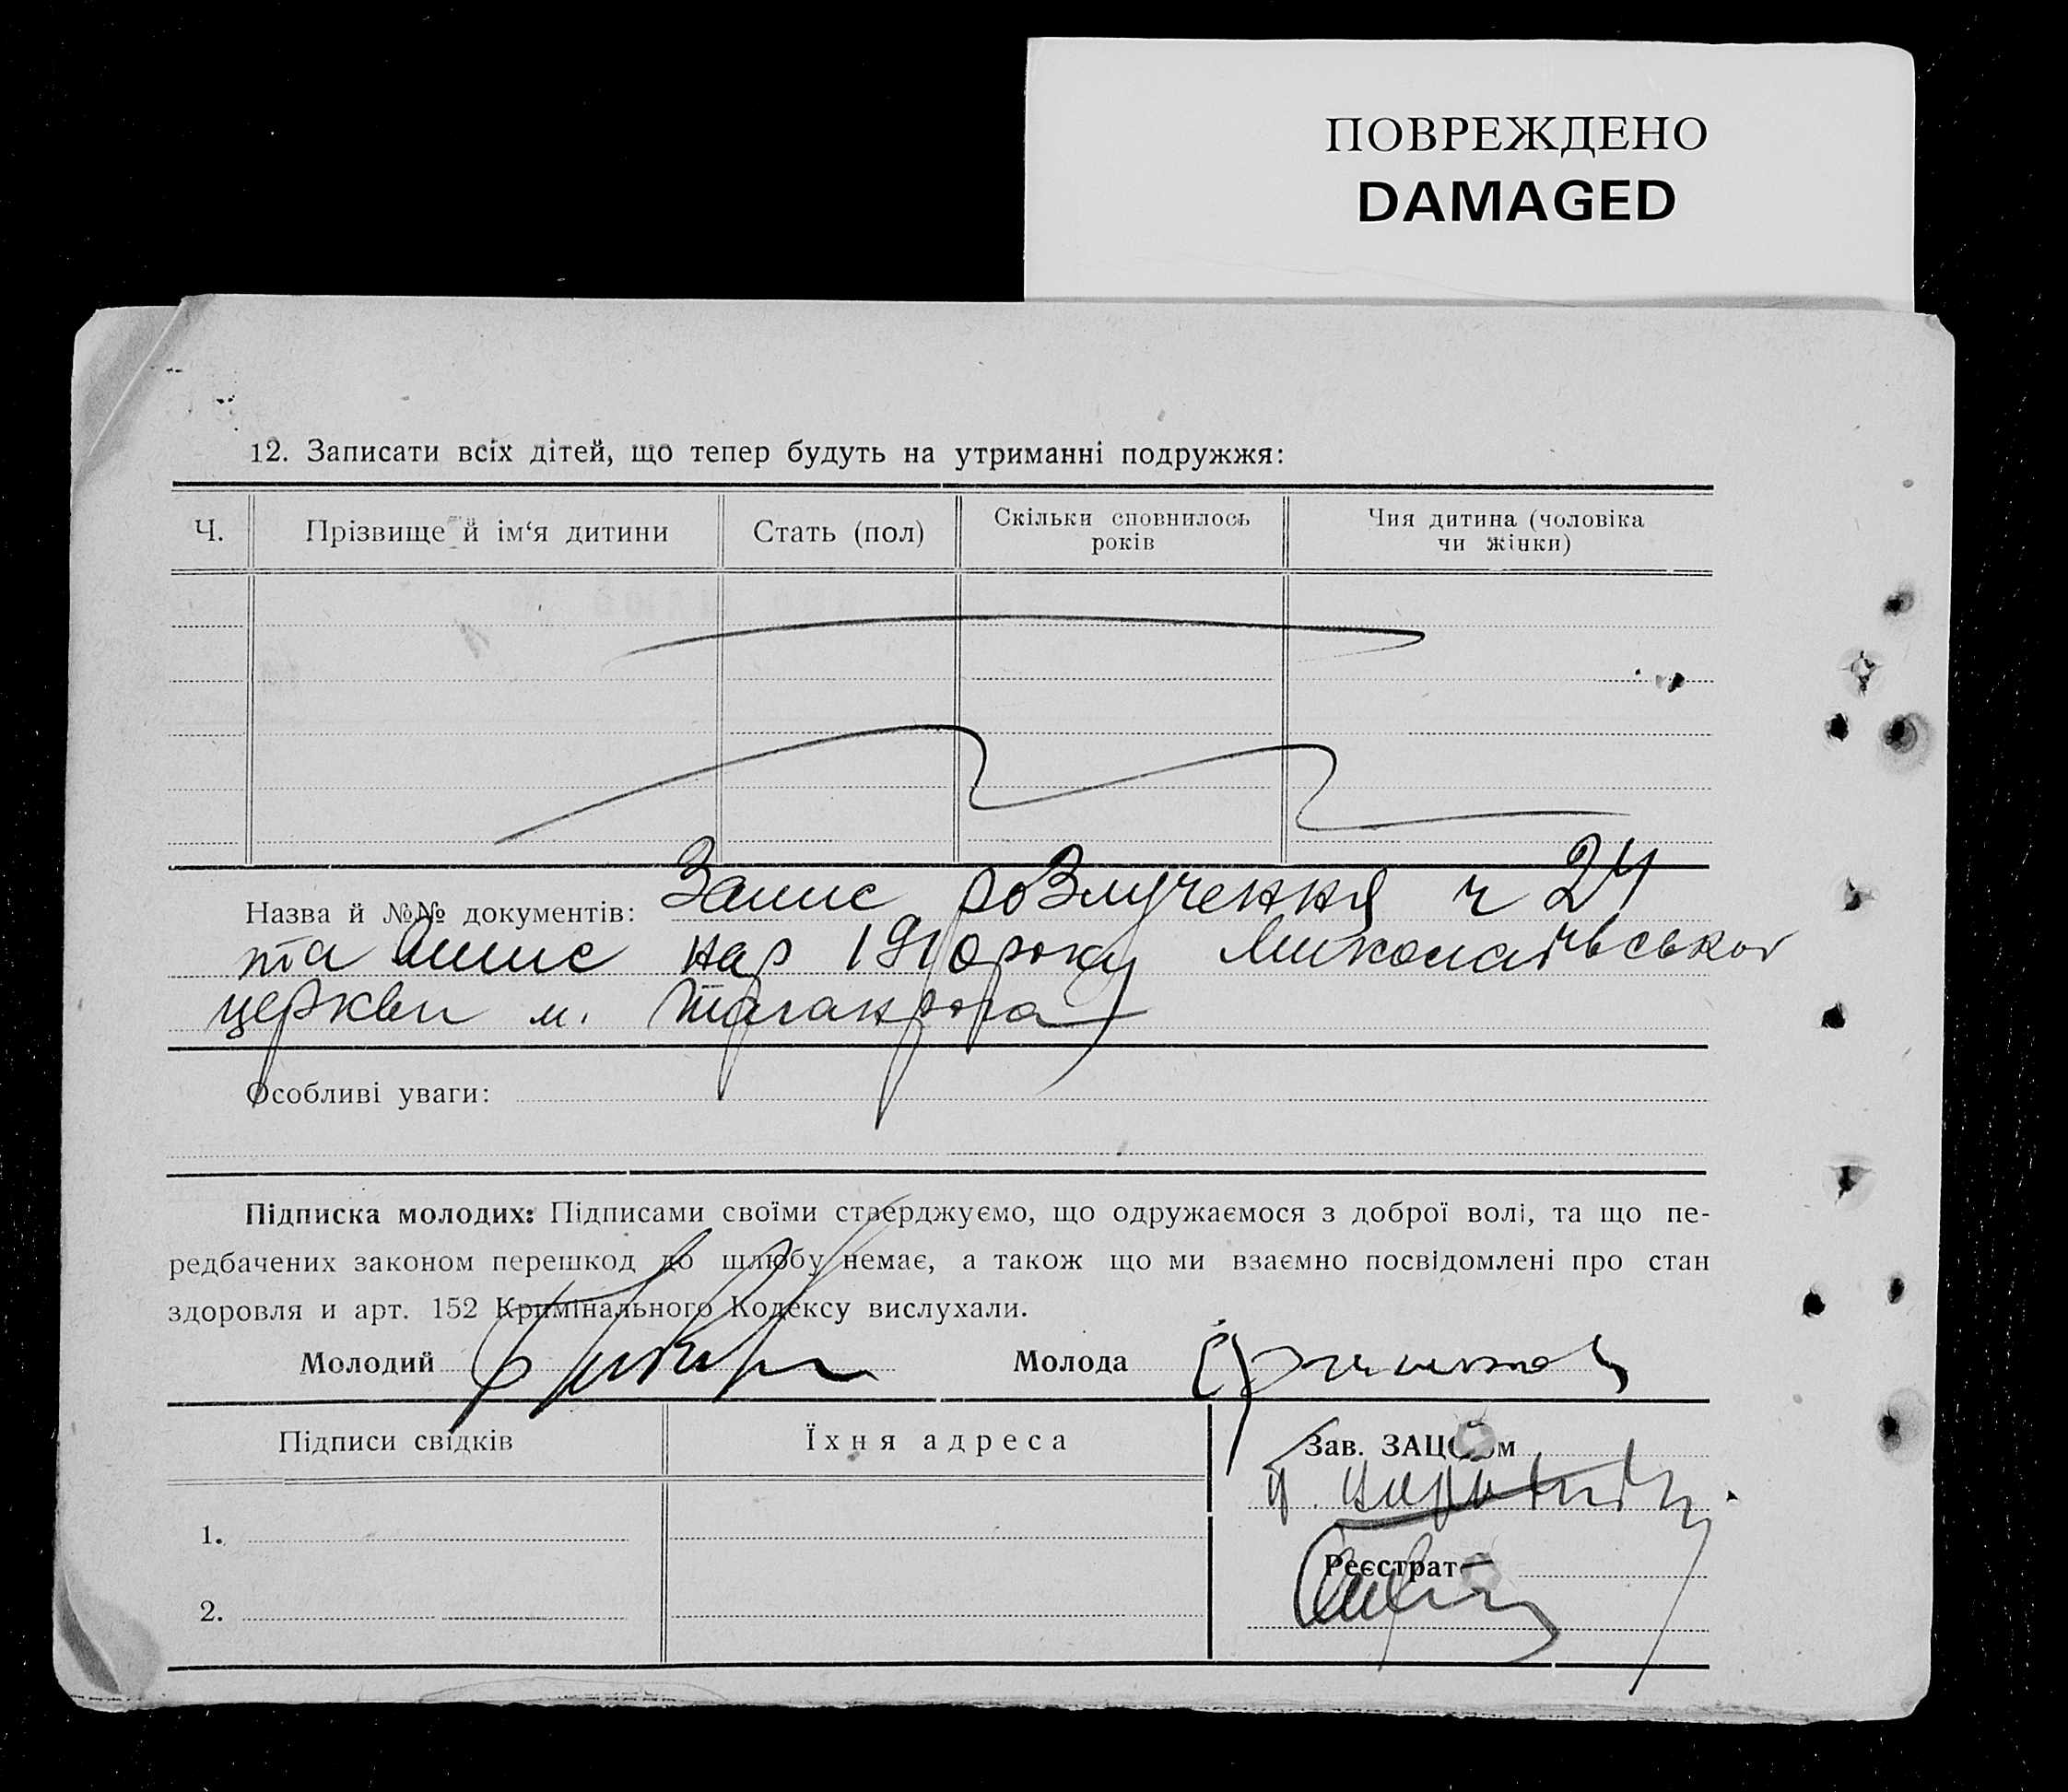 ПОВРЕЖДЕНО
DAMAGED
12. Записати всіх дітей, що тепер будуть на утриманні подружжя:
Ч. Прізвище й ім‘я дитини Стать (пол) Скільки сповнилось років Чия дитина (чоловіка чи жінки)
Назва й №№ документів: Запис розлучення ч 24
та Запис нар 1910 року Миколаївської
церкви м. Таганрога
Особливі уваги:
Підписка молодих: Підписами своїми стверджуємо, що одружаємося з доброї волі, та що пе-
редбачених законом перешкод до шлюбу немає, а також що ми взаємно посвідомлені про стан
здоровля и арт. 152 Кримінального Кодексу вислухали.
Молодий Молода
Підписи свідків Їхня адреса Зав. ЗАЦСом
1.
Реєстрат
2.